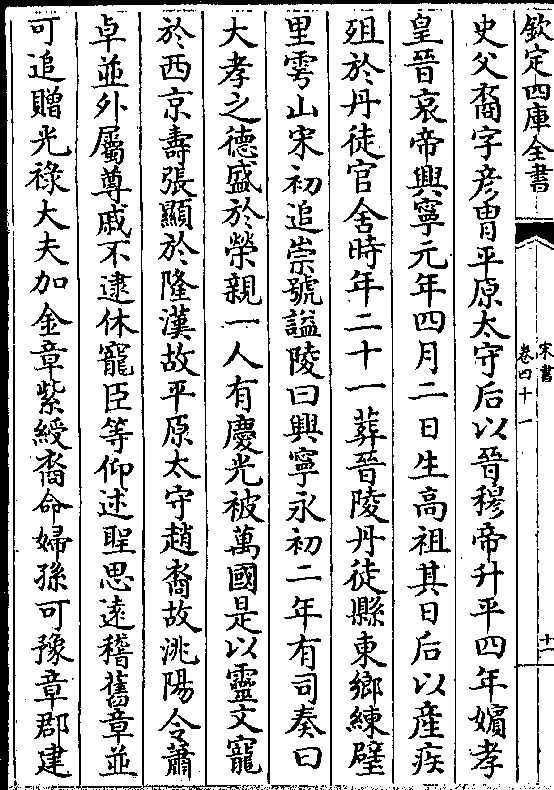 欽定四庫全書
宋書
卷四十一
十一
史父裔字彦胄平原太守后以晉穆帝升平四年嬪孝
皇晉哀帝興寧元年四月二日生髙祖其日后以產疾
殂於丹徒官舍時年二十一葬晉陵丹徒縣東鄉練璧
里雩山宋初追崇號謚陵曰興寧永初二年有司奏曰
大孝之德盛於榮親一人有慶光被萬國是以靈文寵
於西京壽張顯於隆漢故平原太守趙裔故洮陽令蕭
卓並外屬尊戚不逮休寵臣等仰述聖思逺稽舊章並
可追贈光祿大夫加金章紫綬裔命婦孫可豫章郡建